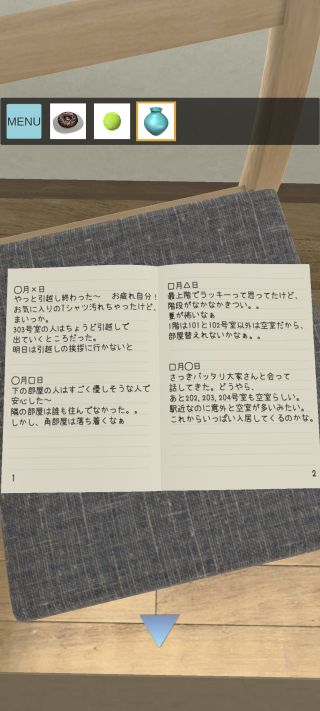 MENU
〇月×日
やっと引越し終わった〜　お疲れ自分!
お気に入りのTシャツ汚れちゃったけど、
まいっか。
303号室の人はちょうど引越しで
出ていくところだった。
明日は引越しの挨拶に行かないと
〇月口日
下の部屋の人はすごく優しそうな人で
安心した〜
隣の部屋は誰も住んでなかった。。
しかし、角部屋は落ち着くなぁ
1
口月△日
最上階でラッキーって思ってたけど、
階段がなかなかきつい。。
夏が怖いなぁ
1階は101と102号室以外は空室だから、
部屋替えれないかなぁ。。
口月〇日
さっきバッタリ大家さんと会って
話してきた。どうやら、
あと202, 203, 204号室も空室らしい。
駅近なのに意外と空室が多いみたい。
これからいっぱい入居してくるのかな。
2